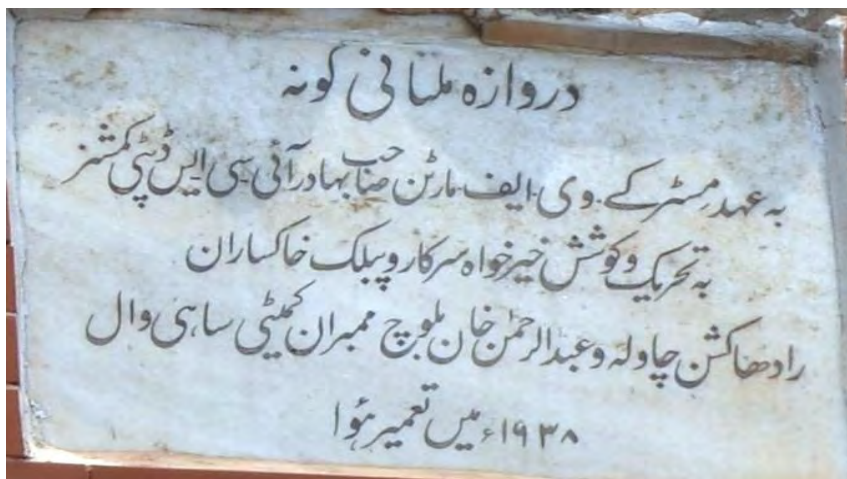 دروازہ ملتانی کونہ
بہ عہد مسٹر کے۔ وی۔ ایف مارٹن صاحب بہادر آئی سی ایس ڈپٹی کمشنر
بہ تحریک و کوشش خیر خواہ سرکار و پبلک خاکساران
رادھا کشن چاولہ و عبدالرحمٰن خان بلوچ ممبران کمیٹی ساہی وال
۱۹۳۸ء میں تعمیر ہؤا